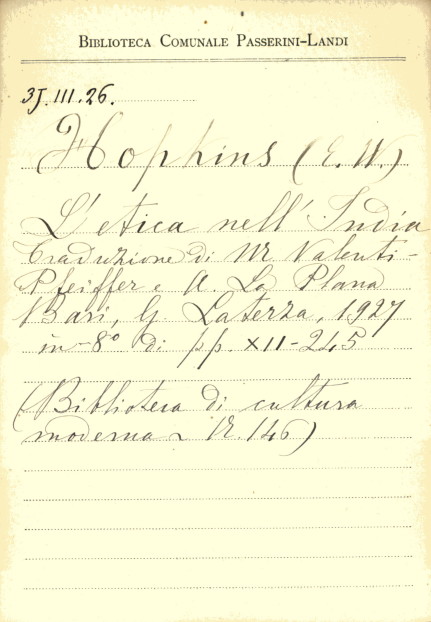 BIBLIOTECA COMUNALE PASSERINI-LANDI
3J.III.26.
Hopkins (E. W.)
L'etica nell'India
Traduzione di M. Valenti-
Pfeiffer e A. La Plana
Bari, G. Laterza, 1927
in-8° di pp. XII-245
(Biblioteca di cultura
moderna - N. 146)